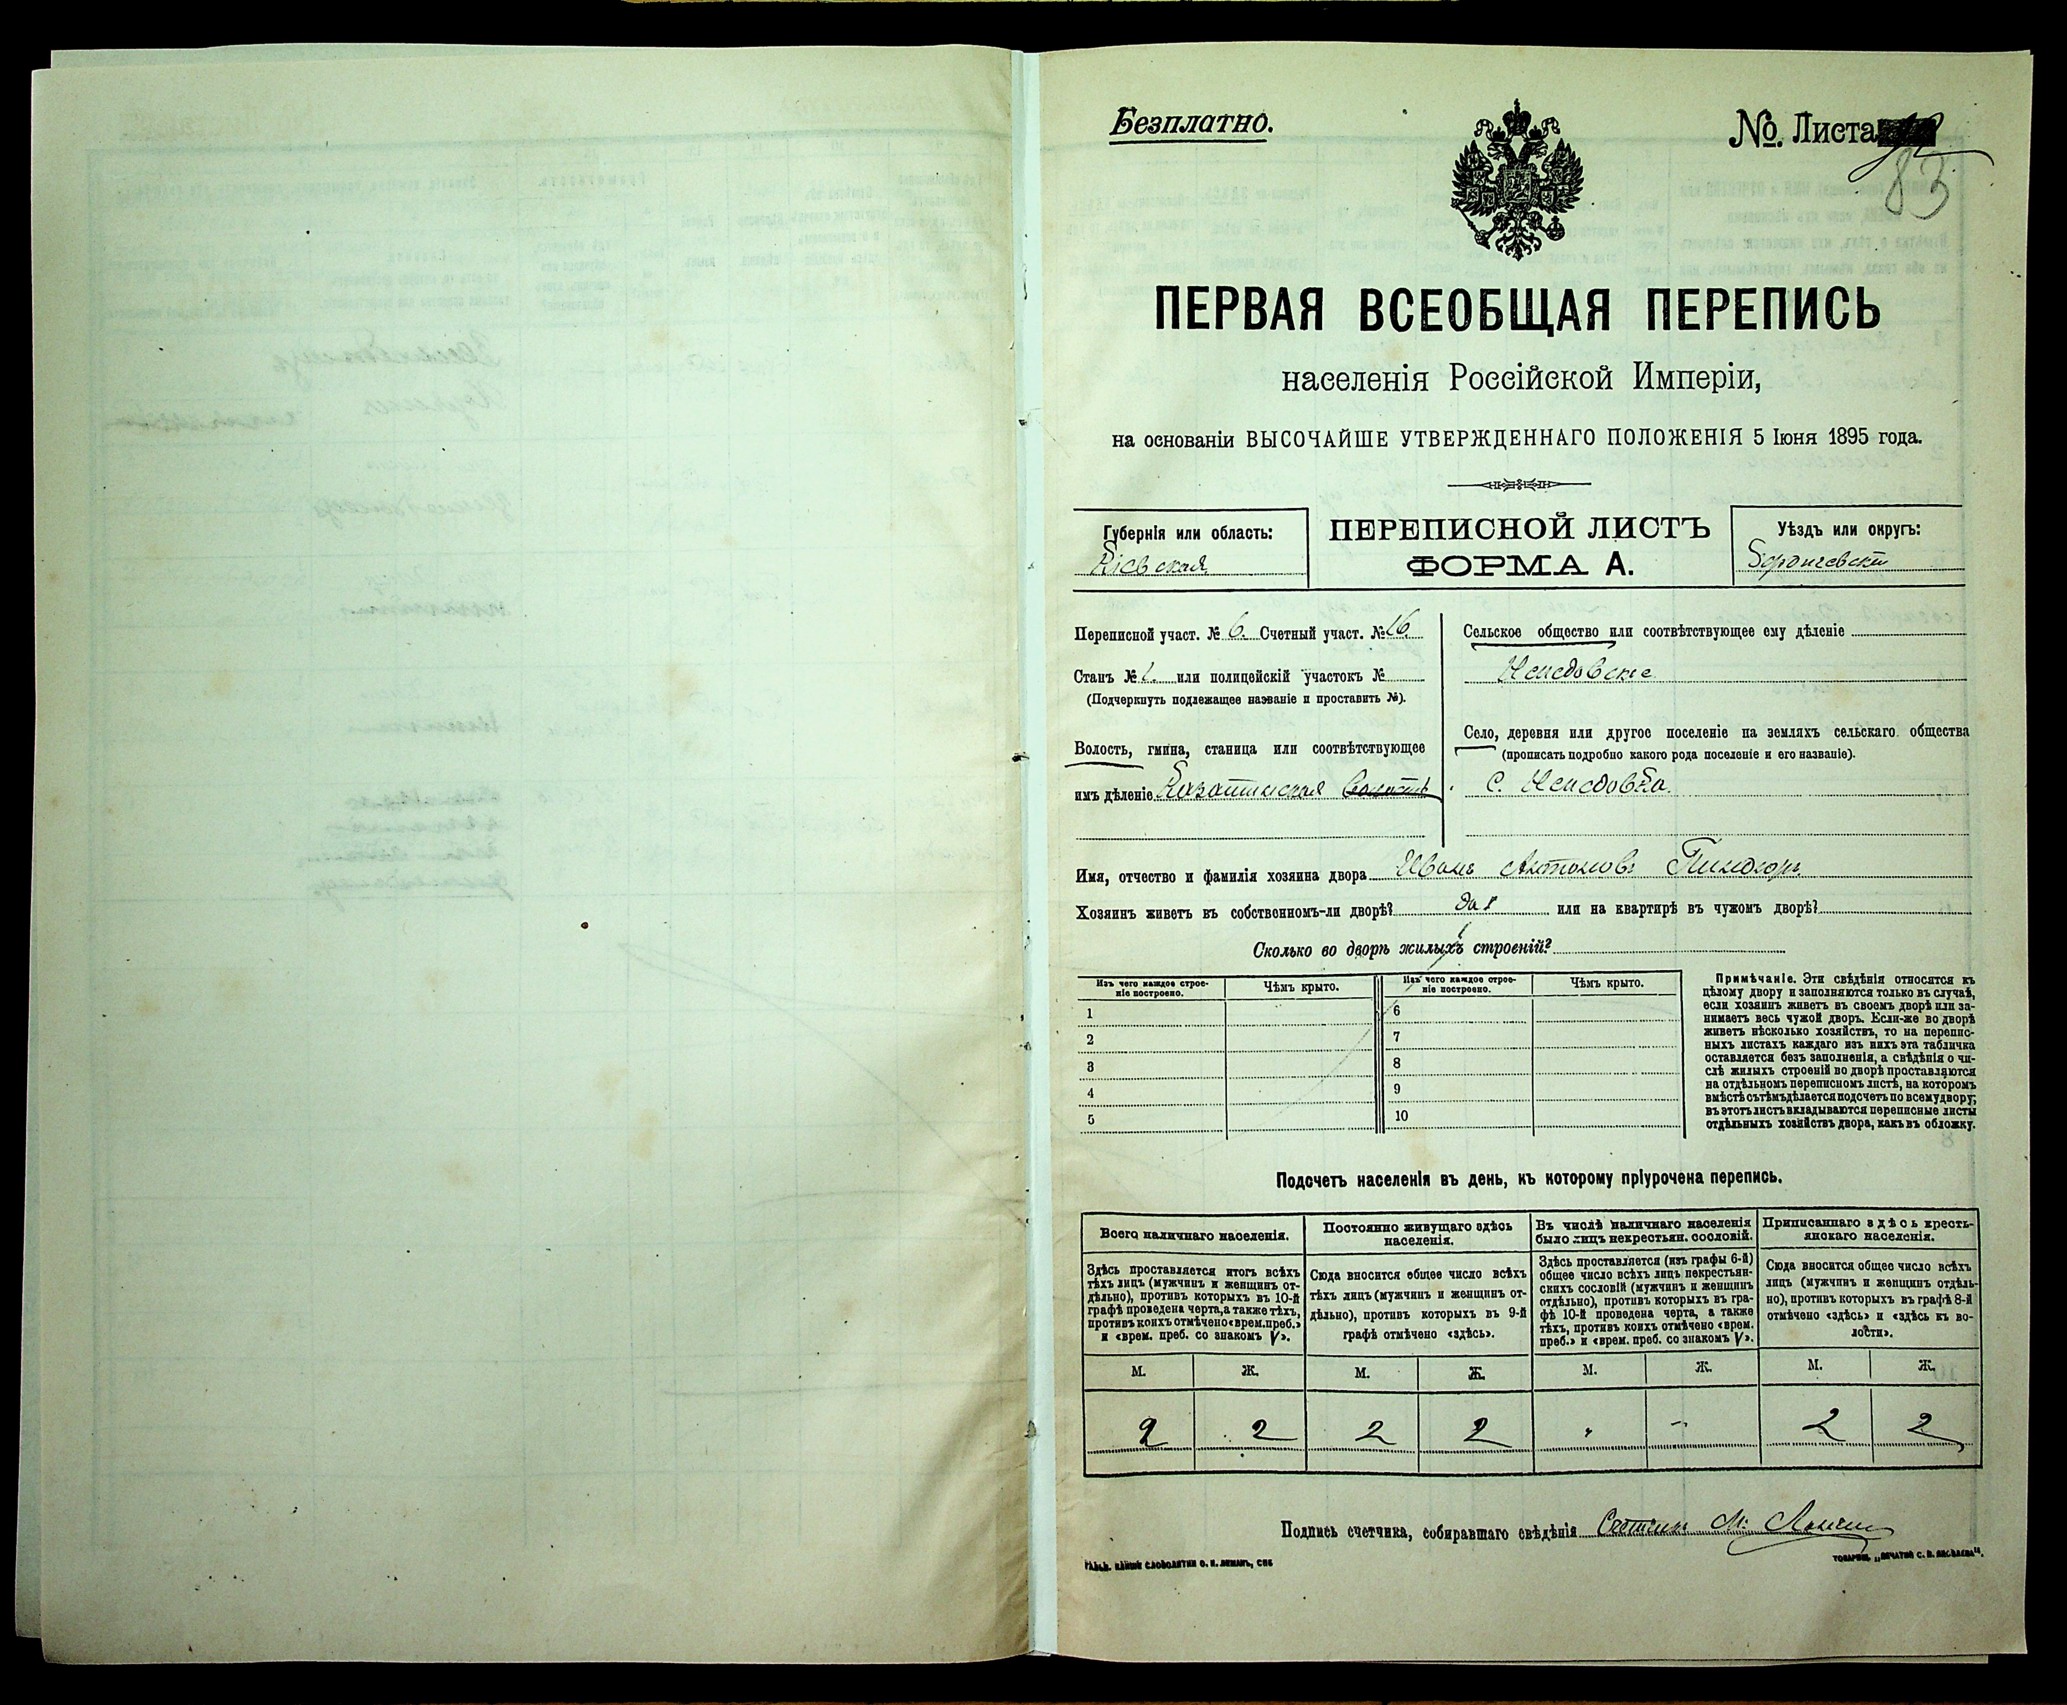 Безплатно.
№ Листа
83
ПЕРВАЯ ВСЕОБЩАЯ ПЕРЕПИСЬ
населенія Россійской Имперіи,
на основаніи ВЫСОЧАЙШЕ УТВЕРЖДЕННАГО ПОЛОЖЕНІЯ 5 Іюня 1895 года.
Губернія или область:
Кіевская
ПЕРЕПИСНОЙ ЛИСТЪ
ФОРМА А.
Уѣздъ или округъ:
Переписной участ. № 6. Счетный участ. № 16
Станъ № 1. или полицейскій участокъ №
(Подчеркнуть подлежащее названіе и проставить №).
Волость, гмина, станица или соотвѣтствующее
имъ дѣленіе
Сельское общество или соотвѣтствующее ему дѣленіе
Село, деревня или другое поселеніе на земляхъ сельскаго общества
(прописать подробно какого рода поселеніе и его названіе).
с.
Имя, отчество и фамилія хозяина двора Иванъ Антоновъ
Хозяинъ живетъ въ собственномъ-ли дворѣ? да или на квартирѣ въ чужомъ дворѣ?
Сколько во дворѣ жилыхъ строеній?
Изъ чего каждое строе-
ніе построено.
Чѣмъ крыто.
Изъ чего каждое строе-
ніе построено.
Чѣмъ крыто.
1 6
2 7
3 8
4 9
5 10
Примѣчаніе. Эти свѣдѣнія относятся къ
цѣлому двору и заполняются только въ случаѣ,
если хозяинъ живетъ въ своемъ дворѣ или за-
нимаетъ весь чужой дворъ. Если-же во дворѣ
живетъ нѣсколько хозяйствъ, то на перепис-
ныхъ листахъ каждаго изъ нихъ эта табличка
оставляется безъ заполненія, а свѣдѣнія о чи-
слѣ жилыхъ строеній во дворѣ проставляются
на отдѣльномъ переписномъ листѣ, на которомъ
вмѣстѣ съ тѣмъ дѣлается подсчетъ по всему двору;
въ этотъ листъ вкладываются переписные листы
отдѣльныхъ хозяйствъ двора, какъ въ обложку.
Подсчетъ населенія въ день, къ которому пріурочена перепись.
Всего наличнаго населенія.
Здѣсь проставляется итогъ всѣхъ
тѣхъ лицъ (мужчинъ и женщинъ от-
дѣльно), противъ которыхъ въ 10-й
графѣ проведена черта, а также тѣхъ,
противъ коихъ отмѣчено «врем. преб.»
и «врем. преб. со знакомъ V».
Постоянно живущаго здѣсь
населенія.
Сюда вносится общее число всѣхъ
тѣхъ лицъ (мужчинъ и женщинъ от-
дѣльно), противъ которыхъ въ 9-й
графѣ отмѣчено «здѣсь».
Въ числѣ наличнаго населенія
было лицъ некрестьян. сословій.
Здѣсь проставляется (изъ графы 6-й)
общее число всѣхъ лицъ некрестьян-
скихъ сословій (мужчинъ и женщинъ
отдѣльно), противъ которыхъ въ гра-
фѣ 10-й проведена черта, а также
тѣхъ, противъ коихъ отмѣчено «врем.
преб.» и «врем. преб. со знакомъ V».
Приписаннаго здѣсь кресть-
янскаго населенія.
Сюда вносится общее число всѣхъ
лицъ (мужчинъ и женщинъ отдѣль-
но), противъ которыхъ въ графѣ 8-й
отмѣчено «здѣсь» и «здѣсь къ во-
лости».
М. Ж. М. Ж. М. Ж. М. Ж.
2 2 2 2 " " 2 2
Подпись счетчика, собиравшаго свѣдѣнія